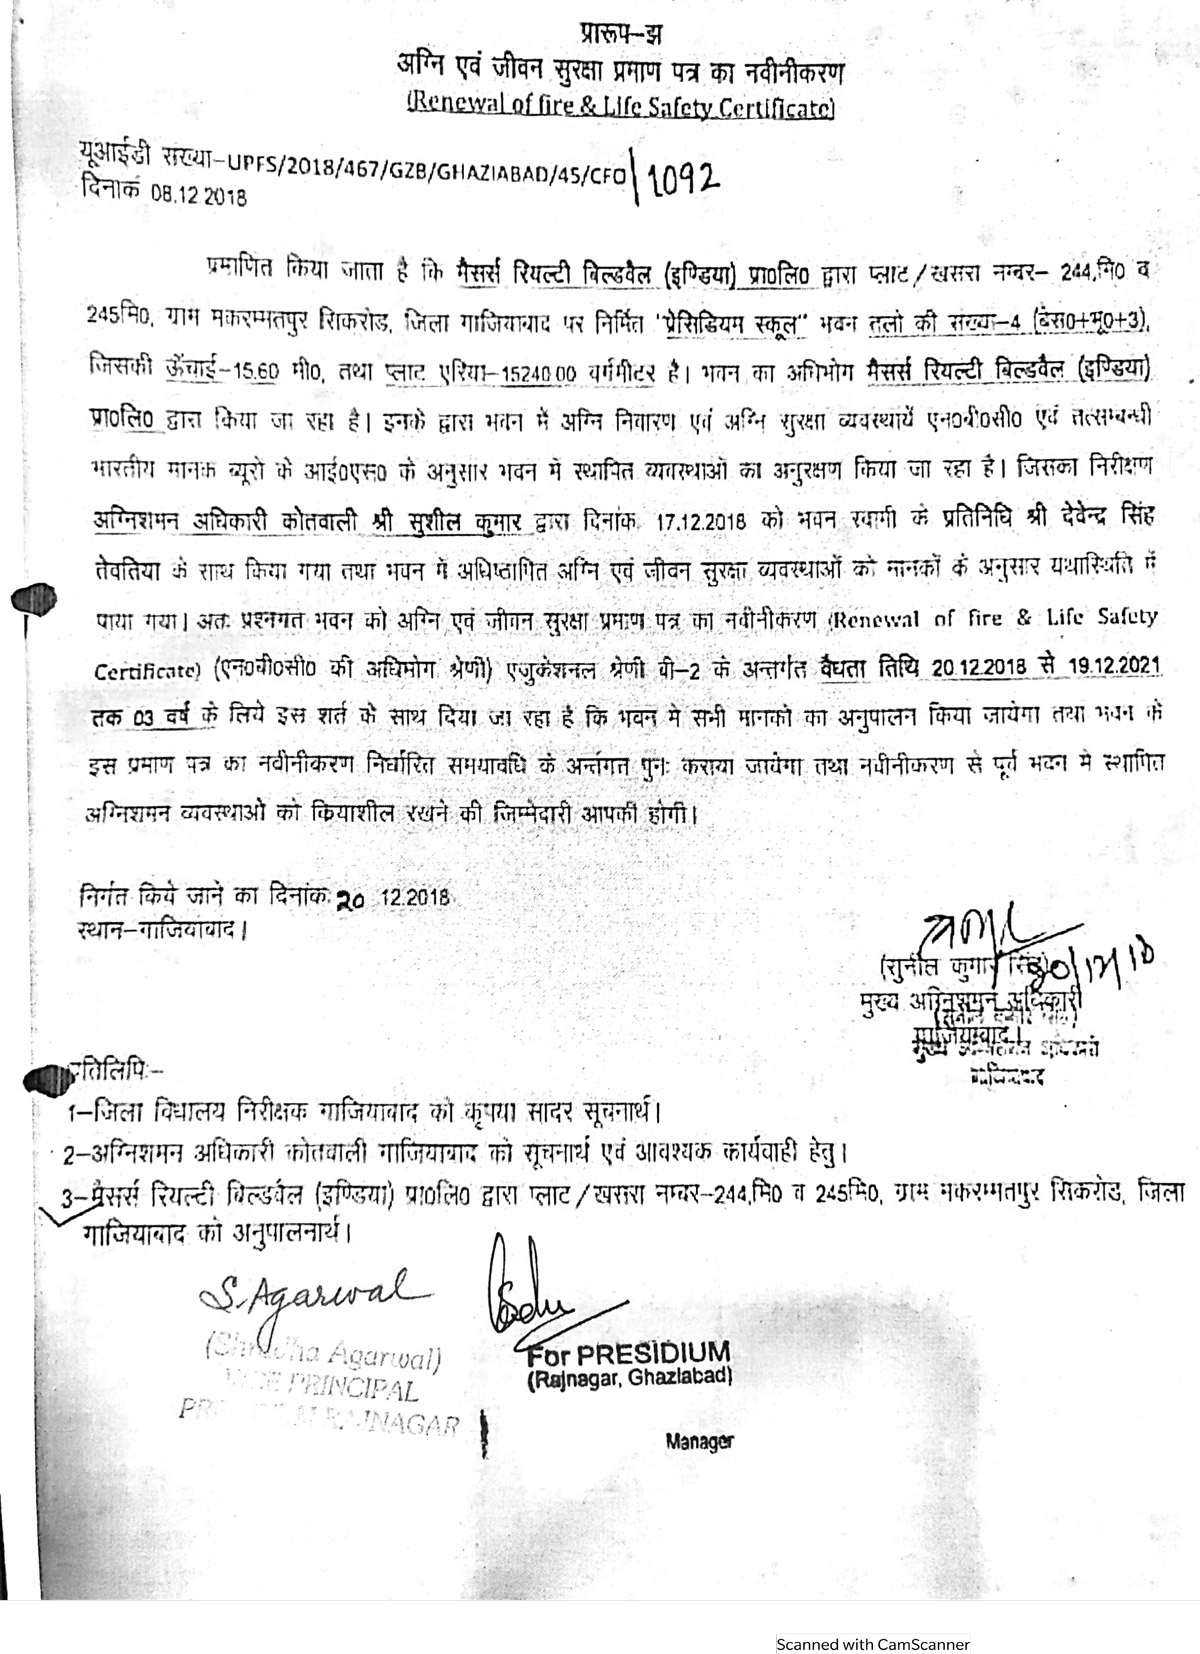 प्रारूप-झ
अग्नि एवं जीवन सुरक्षा प्रमाण पत्र का नवीनीकरण
(Renewal of fire & Life Safety Certificate)
यूआईडी संख्या-UPFS/2018/467/GZB/GHAZIABAD/45/CFO/1092
दिनांक 08.12.2018
प्रमाणित किया जाता है कि मैसर्स रियल्टी बिल्डवैल (इण्डिया) प्रा0लि0 द्वारा प्लाट/खसरा नम्बर- 244,मि0 व
245मि0, ग्राम मकरम्मतपुर सिकरोड, जिला गाजियाबाद पर निर्मित "प्रेसिडियम स्कूल" भवन तलो की संख्या-4 (बेस0+भू0+3),
जिसकी ऊँचाई-15.60 मी0, तथा प्लाट एरिया-15240.00 वर्गमीटर है। भवन का अधिभोग मैसर्स रियल्टी बिल्डवैल (इण्डिया)
प्रा0लि0 द्वारा किया जा रहा है। इनके द्वारा भवन में अग्नि निवारण एवं अग्नि सुरक्षा व्यवस्थायें एन0बी0सी0 एवं तत्सम्बन्धी
भारतीय मानक ब्यूरो के आई0एस0 के अनुसार भवन में स्थापित व्यवस्थाओं का अनुरक्षण किया जा रहा है। जिसका निरीक्षण
अग्निशमन अधिकारी कोतवाली श्री सुशील कुमार द्वारा दिनांक 17.12.2018 को भवन स्वामी के प्रतिनिधि श्री देवेन्द्र सिंह
तेवतिया के साथ किया गया तथा भवन में अधिष्ठापित अग्नि एवं जीवन सुरक्षा व्यवस्थाओं को मानकों के अनुसार यथास्थिति में
पाया गया। अतः प्रश्नगत भवन को अग्नि एवं जीवन सुरक्षा प्रमाण पत्र का नवीनीकरण (Renewal of fire & Life Safety
Certificate) (एन0बी0सी0 की अधिभोग श्रेणी) एजुकेशनल श्रेणी बी-2 के अन्तर्गत वैधता तिथि 20.12.2018 से 19.12.2021
तक 03 वर्ष के लिये इस शर्त के साथ दिया जा रहा है कि भवन मे सभी मानको का अनुपालन किया जायेगा तथा भवन के
इस प्रमाण पत्र का नवीनीकरण निर्धारित समयावधि के अर्न्तगत पुनः कराया जायेगा तथा नवीनीकरण से पूर्व भवन मे स्थापित
अग्निशमन व्यवस्थाओ को कियाशील रखने की जिम्मेदारी आपकी होगी।
निर्गत किये जाने का दिनांक: 20 12.2018
स्थान-गाजियाबाद।
(सुनील कुमार सिंह) 20/12/18
मुख्य अग्निशमन अधिकारी
गाजियाबाद।
मुख्य अग्निशमन अधिकारी
गाजियाबाद
प्रतिलिपि:-
1-जिला विधालय निरीक्षक गाजियाबाद को कृपया सादर सूचनार्थ।
2-अग्निशमन अधिकारी कोतवाली गाजियाबाद को सूचनार्थ एवं आवश्यक कार्यवाही हेतु।
3-मैसर्स रियल्टी बिल्डवैल (इण्डिया) प्रा0लि0 द्वारा प्लाट/खसरा नम्बर-244,मि0 व 245मि0, ग्राम मकरम्मतपुर सिकरोड, जिला
गाजियाबाद को अनुपालनार्थ।
S.Agarwal
(Shradha Agarwal)
VICE PRINCIPAL
PRESIDIUM RAJNAGAR
For PRESIDIUM
(Rajnagar, Ghaziabad)
Manager
Scanned with CamScanner